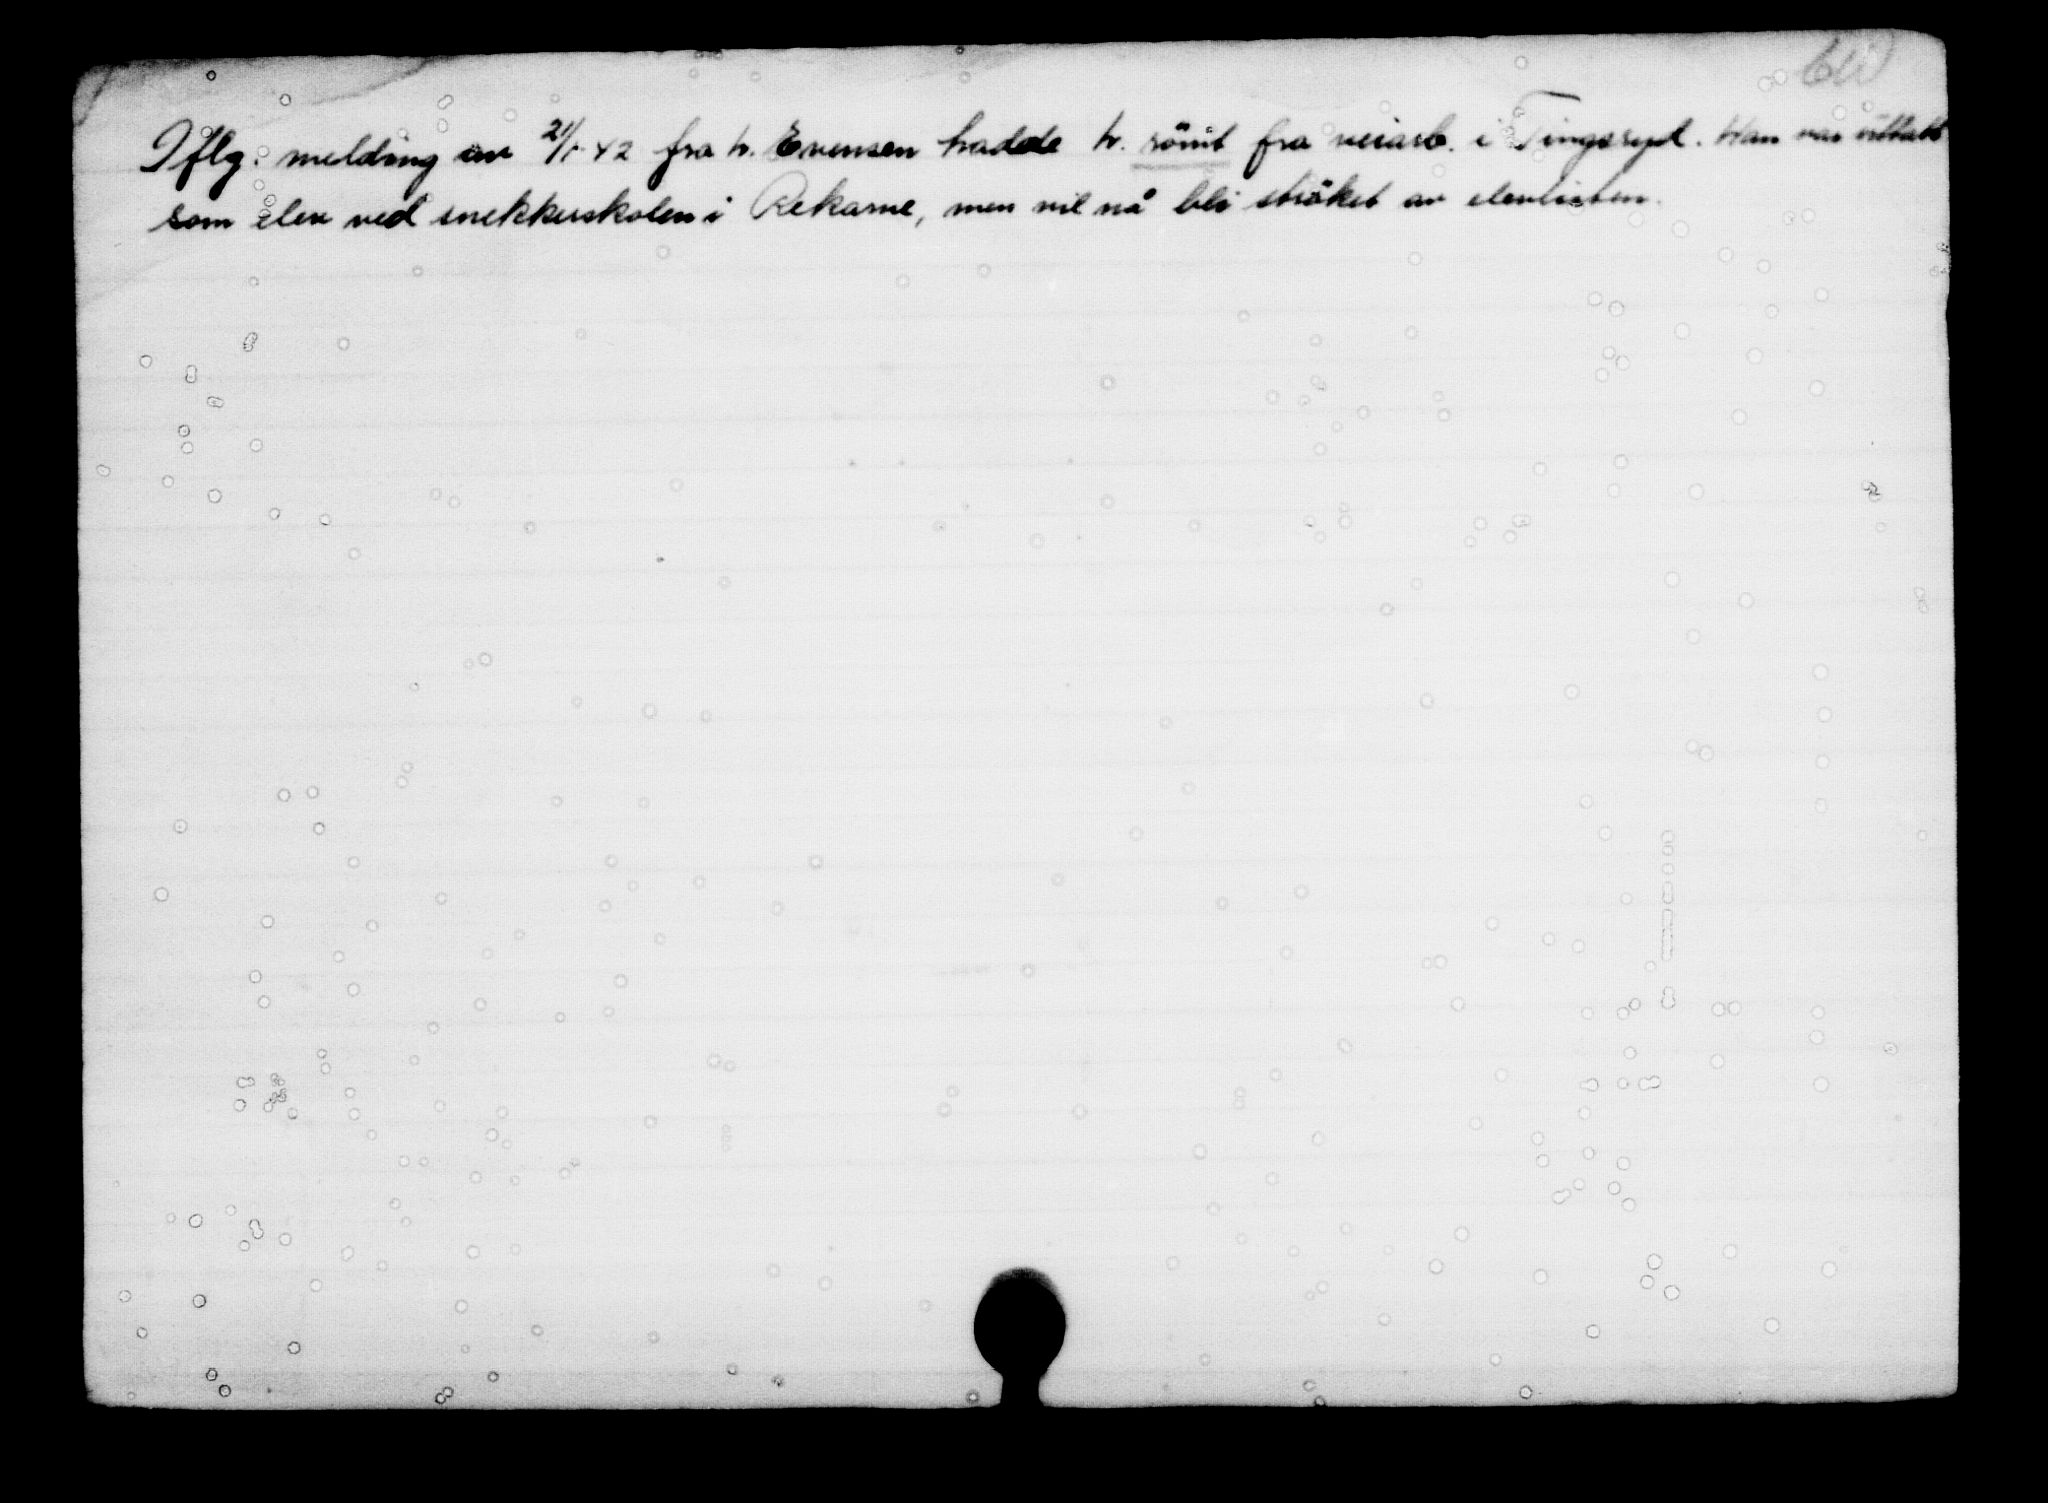 Iflg. melding av 21/1 42 fra h. Evensen hadde h. römt fra veiarb. i Tingsryd. Han var uttatt
som elev ved snekkerskolen i Rekarne, men vil nå bli ströket av elevlisten.